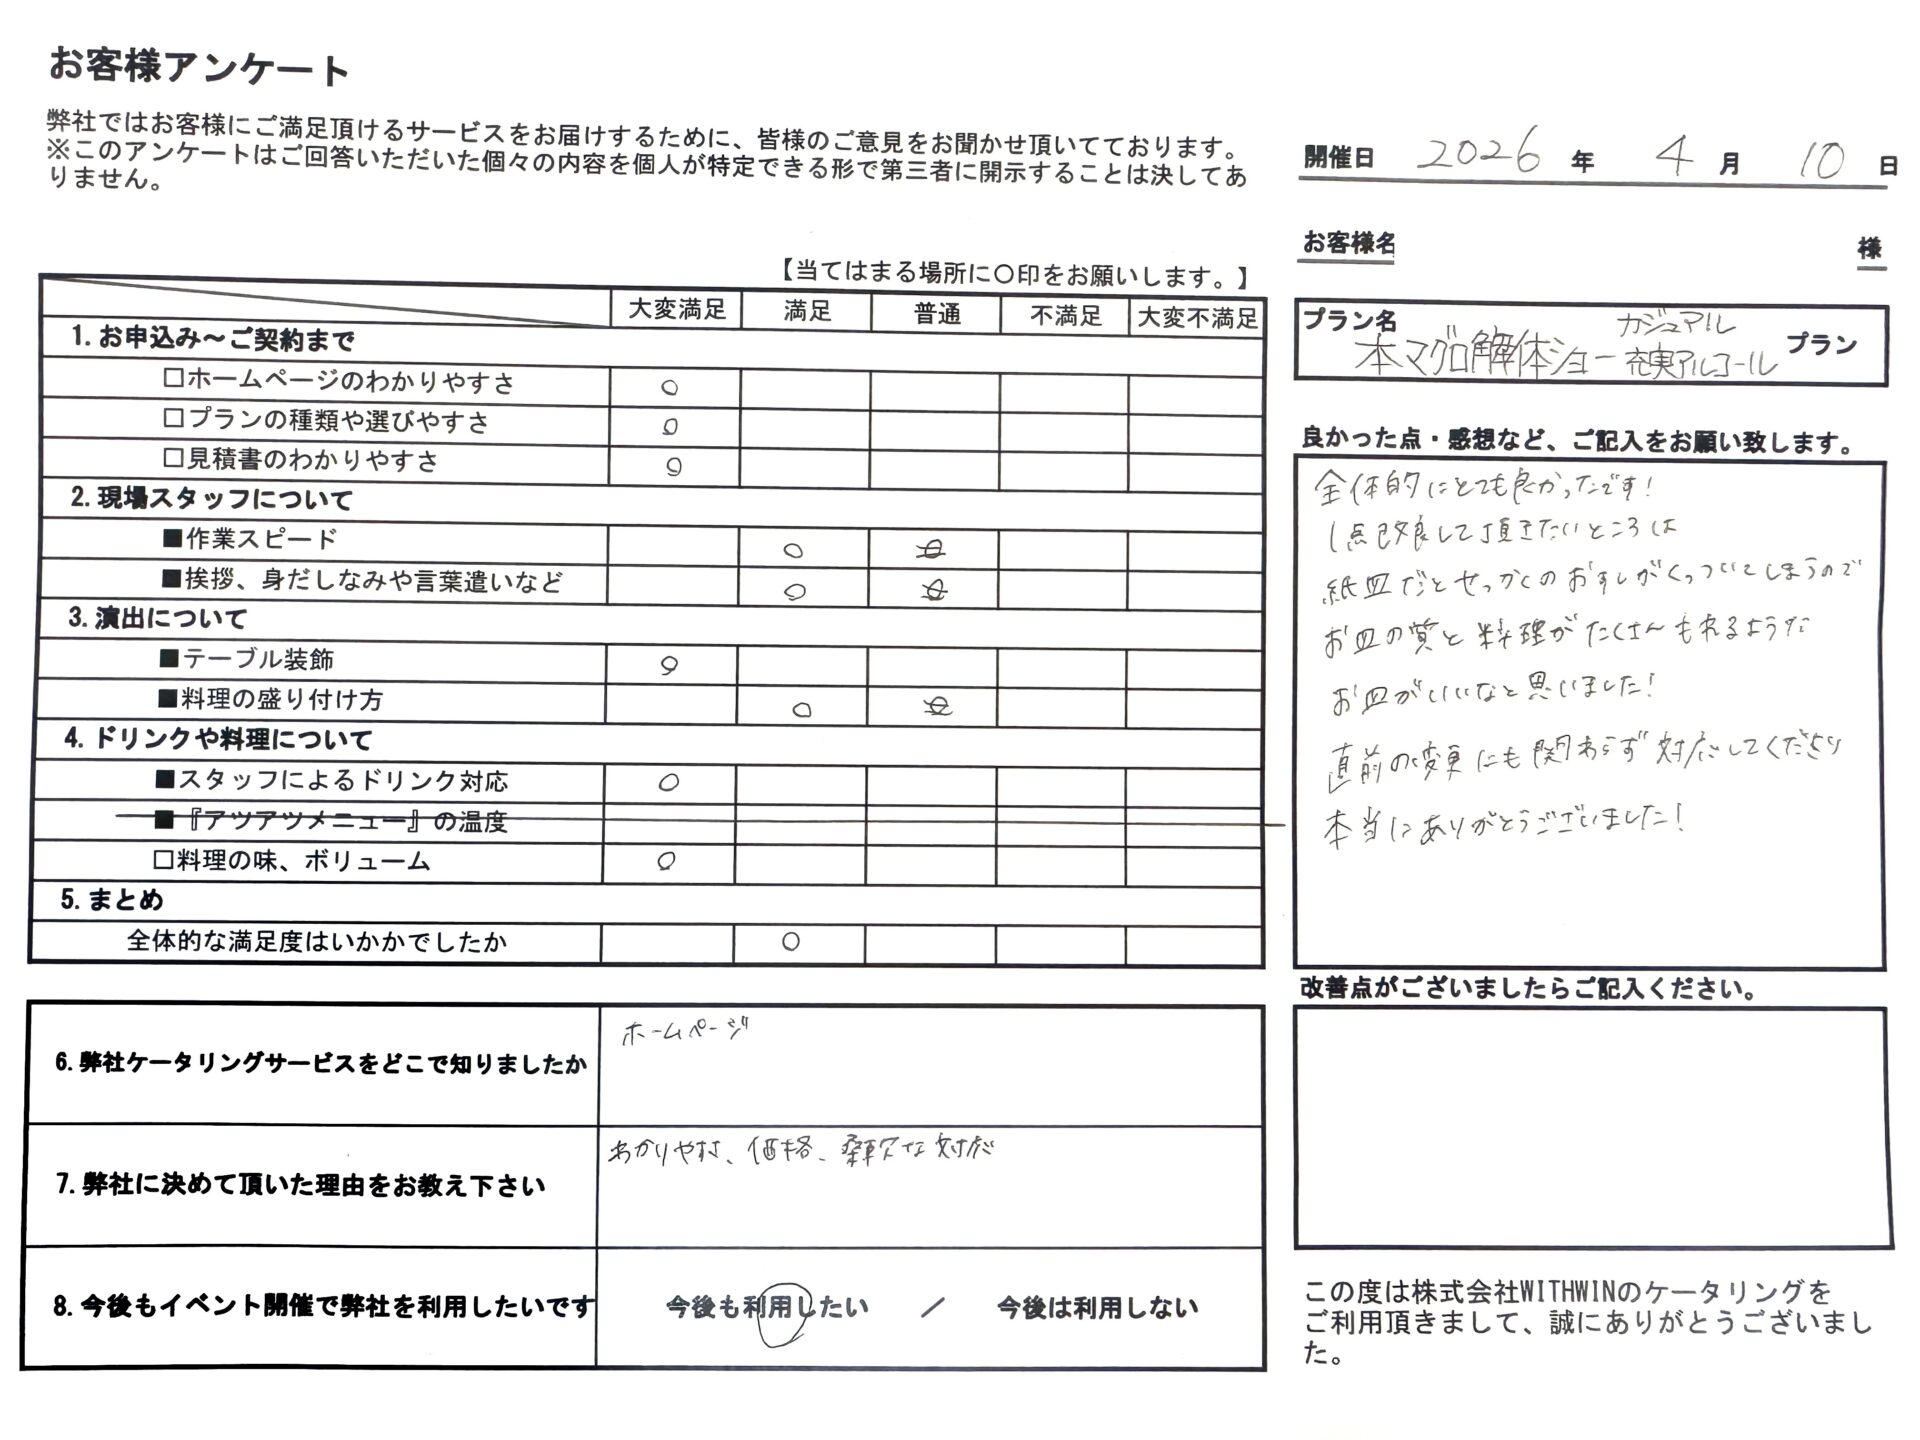 お客様アンケート
弊社ではお客様にご満足頂けるサービスをお届けするために、皆様のご意見をお聞かせ頂いてております。
※このアンケートはご回答いただいた個々の内容を個人が特定できる形で第三者に開示することは決してあ
りません。
【当てはまる場所に〇印をお願いします。】
大変満足 満足 普通 不満足 大変不満足
1. お申込み～ご契約まで
□ホームページのわかりやすさ ○
□プランの種類や選びやすさ ○
□見積書のわかりやすさ ○
2. 現場スタッフについて
■作業スピード ○
■挨拶、身だしなみや言葉遣いなど ○
3. 演出について
■テーブル装飾 ○
■料理の盛り付け方 ○
4. ドリンクや料理について
■スタッフによるドリンク対応 ○
■『アツアツメニュー』の温度
□料理の味、ボリューム ○
5. まとめ
全体的な満足度はいかかでしたか ○
6. 弊社ケータリングサービスをどこで知りましたか
ホームページ
7. 弊社に決めて頂いた理由をお教え下さい
わかりやすさ、価格、柔軟な対応
8. 今後もイベント開催で弊社を利用したいです
今後も利用したい ／ 今後は利用しない
開催日 2026 年 4 月 10 日
お客様名 様
プラン名
カジュアル
本マグロ解体ショー 充実アルコール プラン
良かった点・感想など、ご記入をお願い致します。
全体的にとても良かったです！
1点改良して頂きたいところは
紙皿だとせっかくのおすしがくっついてしまうので
お皿の質と料理がたくさんもれるような
お皿がいいなと思いました！
直前の変更にも関わらず対応してくださり
本当にありがとうございました！
改善点がございましたらご記入ください。
この度は株式会社WITHWINのケータリングを
ご利用頂きまして、誠にありがとうございまし
た。